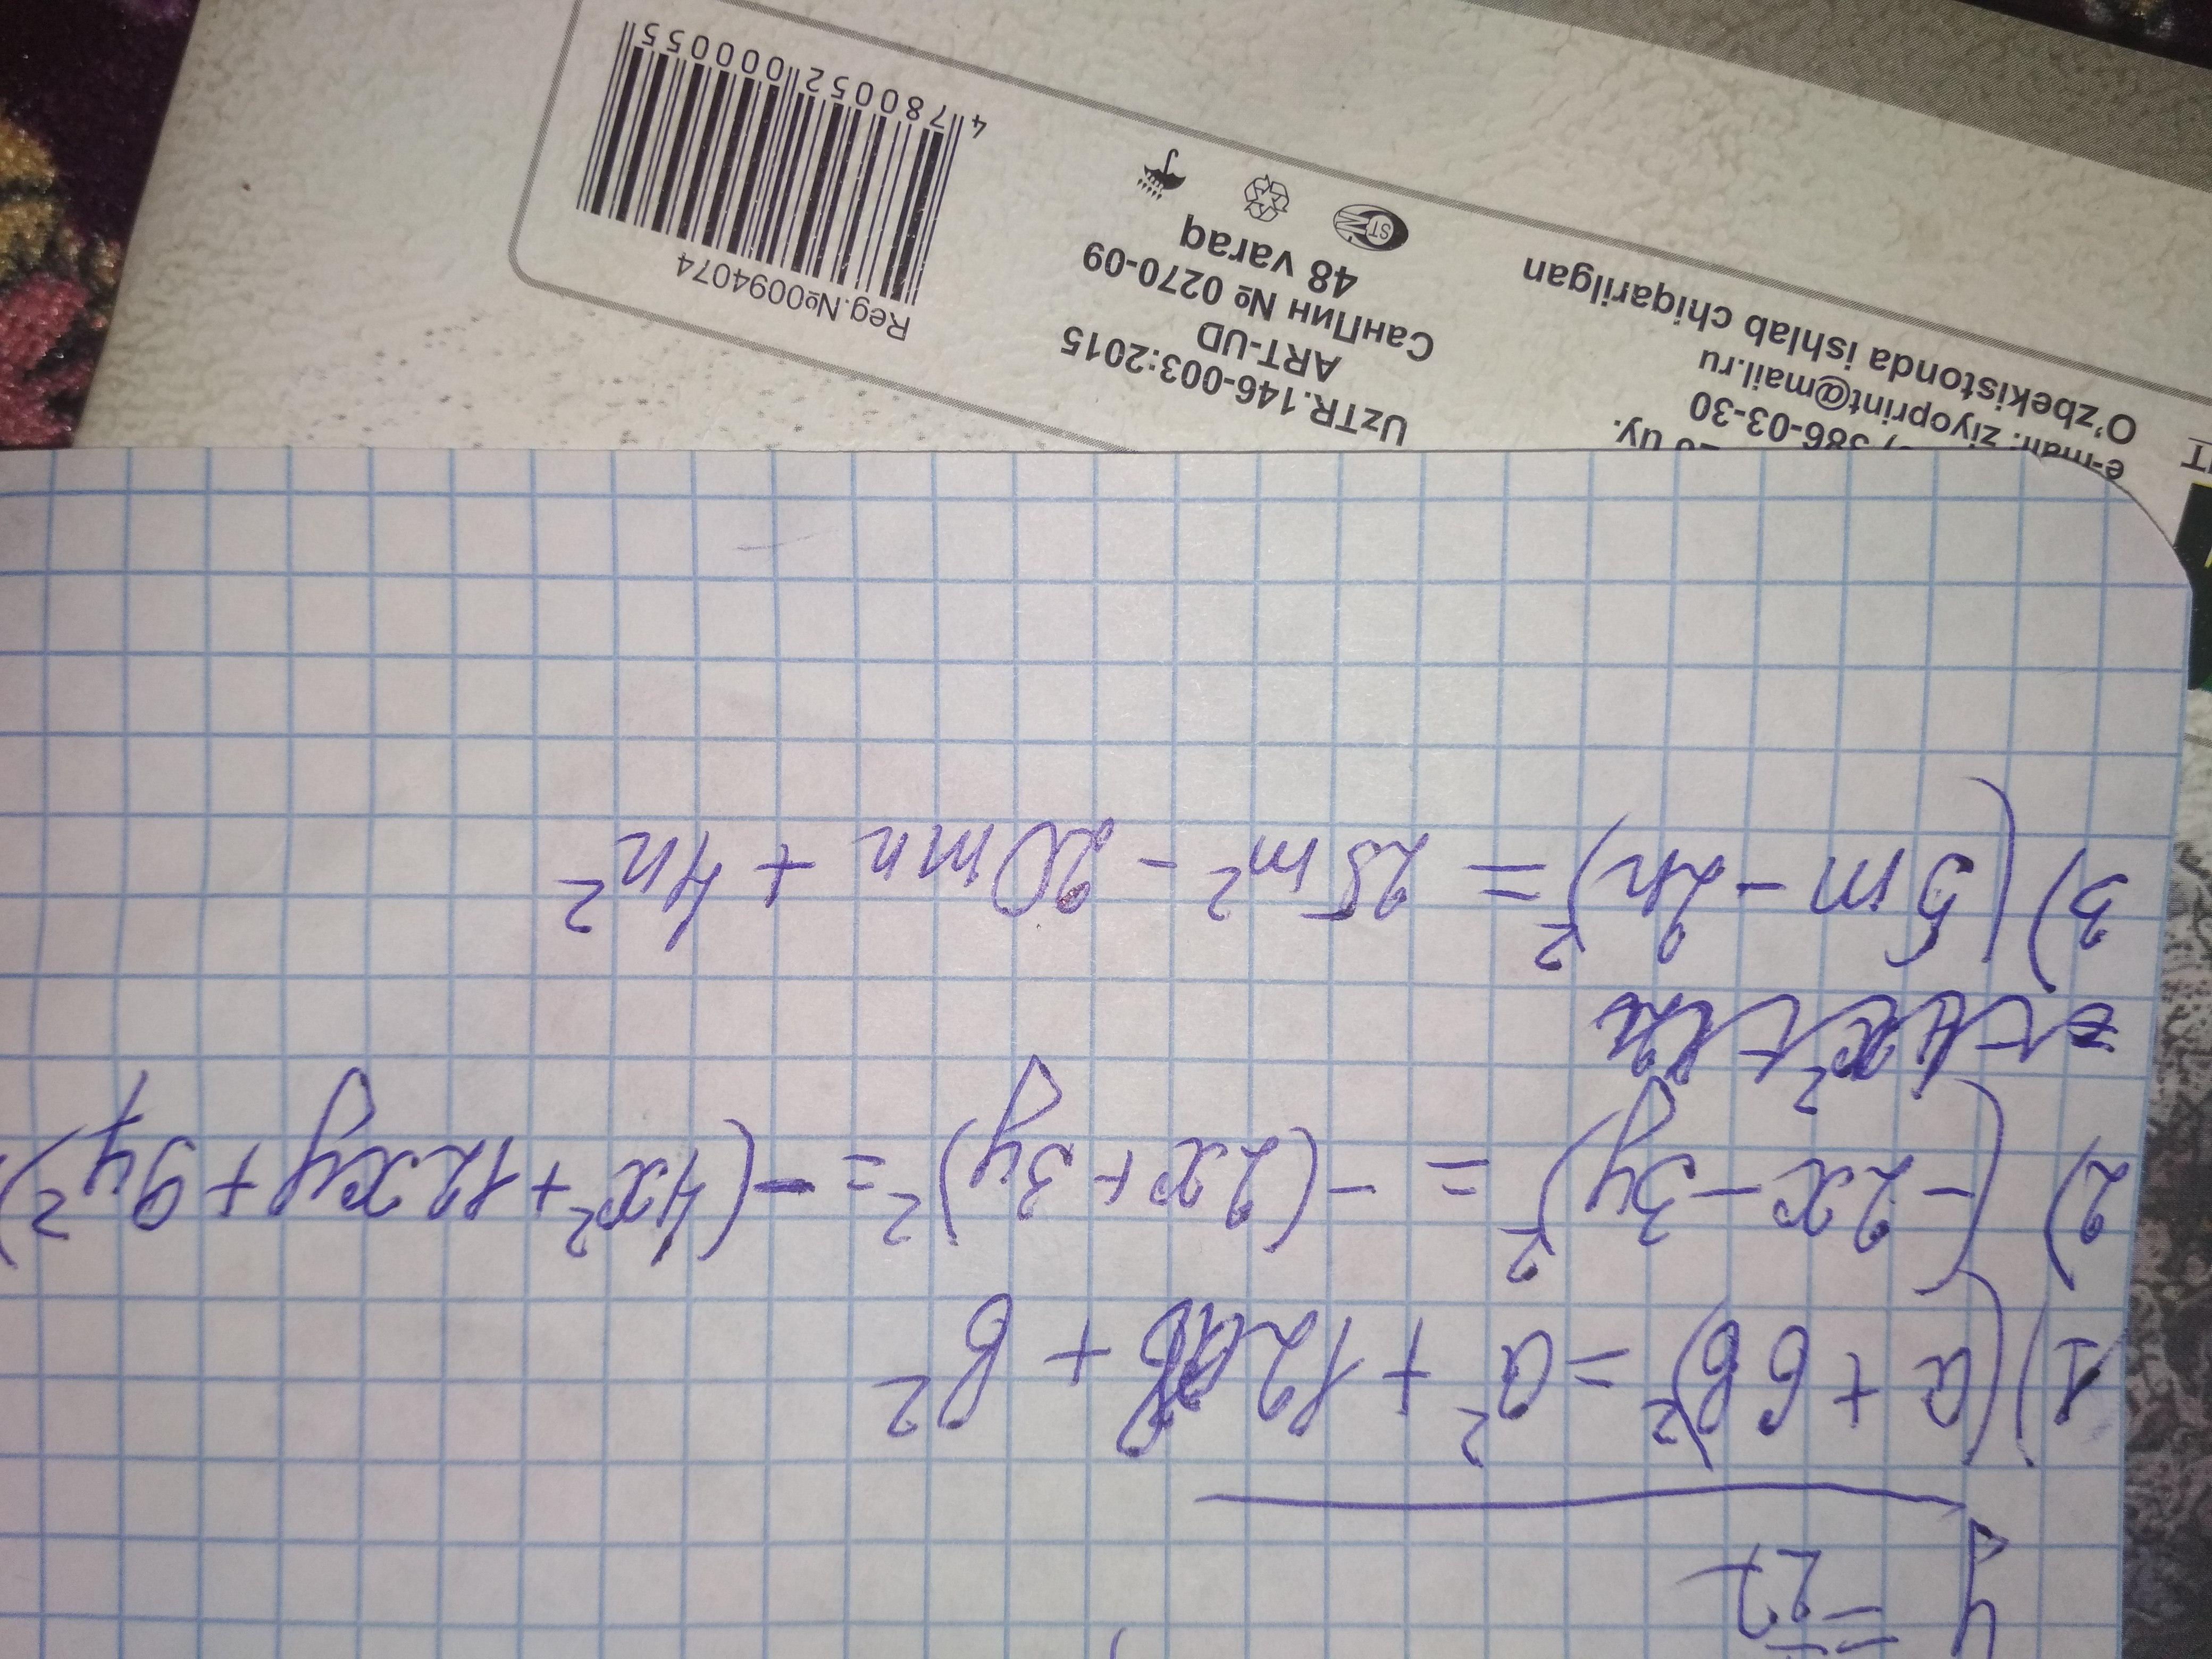 y = 27
1) (a + 6b)² = a² + 12ab + b²
2) (-2x - 3y)² = -(2x + 3y)² = -(4x² + 12xy + 9y²)
3) (5m - 2n)² = 25m² - 20mn + 4n²
e-mail: ziyoprint@mail.ru
O'zbekistonda ishlab chiqarilgan
386-03-30
uy.
UzTR.146-003:2015
ART-UD
СанПин № 0270-09
48 varaq
ST
Reg.№0094074
4 780052 000055